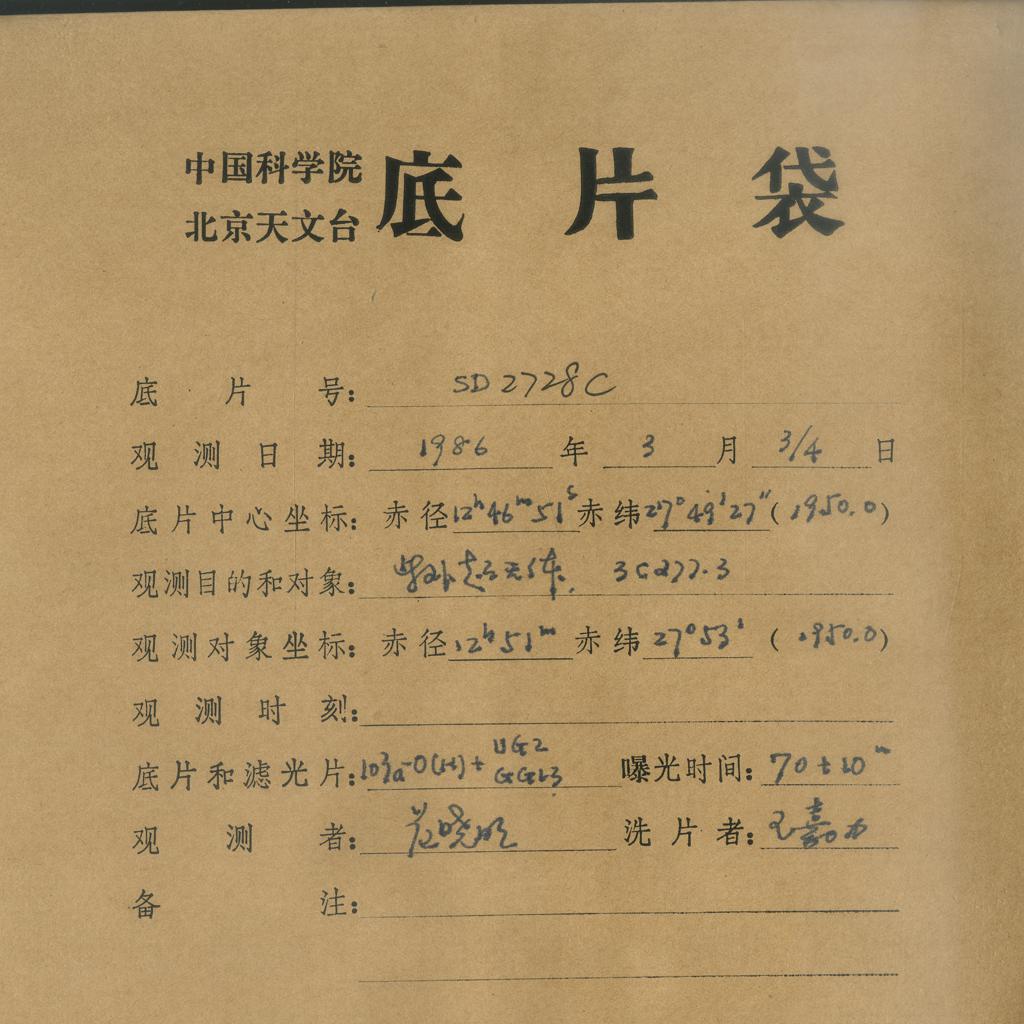 中国科学院
北京天文台
底片袋
底片号: SD2728C
观测日期: 1986 年 3 月 3/4 日
底片中心坐标: 赤径 12h46m51s 赤纬 27°49′27″ (1950.0)
观测目的和对象: 紫外超天体, 3C277.3
观测对象坐标: 赤径 12h51m 赤纬 27°53′ (1950.0)
观测时刻:
底片和滤光片: 103a-O(H)+ UG2 GG13 曝光时间: 70+20m
观测者: 范晓明 洗片者:
备注: